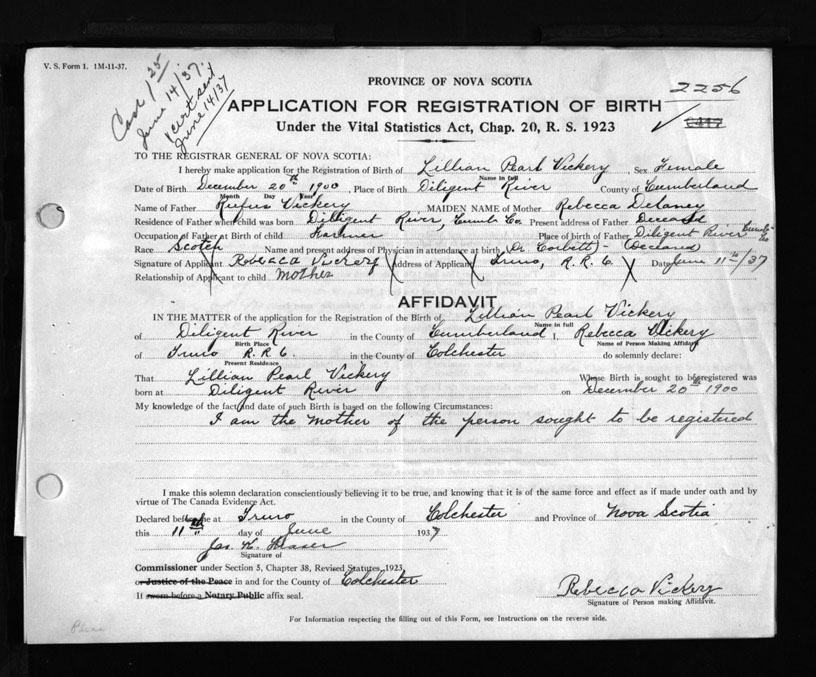 V. S. Form 1. 1M-11-37.
Cash 1 25
June 14/37.
cert sent
June 14/37
PROVINCE OF NOVA SCOTIA
2256
APPLICATION FOR REGISTRATION OF BIRTH
Under the Vital Statistics Act, Chap. 20, R. S. 1923
TO THE REGISTRAR GENERAL OF NOVA SCOTIA:
I hereby make application for the Registration of Birth of Lillian Pearl Vickery, Sex Female
Name in full
Date of Birth December 20th 1900, Place of Birth Diligent River County of Cumberland
Month Day Year
Name of Father Rufus Vickery MAIDEN NAME of Mother Rebecca Delaney
Residence of Father when child was born Dilligent River, Cumb Co. Present address of Father Deceased
Occupation of Father at Birth of child Farmer Place of birth of Father Diligent River Cumb Co
Race Scotch Name and present address of Physician in attendance at birth (Dr. Corbett) - (Deceased
Signature of Applicant Rebecca Vickery Address of Applicant Truro, R. R. 6. Date June 11th/37
Relationship of Applicant to child Mother
AFFIDAVIT
IN THE MATTER of the application for the Registration of the Birth of Lillian Pearl Vickery
Name in full
of Diligent River in the County of Cumberland I, Rebecca Vickery
Birth Place Name of Person Making Affidavit
of Truro R. R. 6. in the County of Colchester do solemnly declare:
Present Residence
That Lillian Pearl Vickery Whose Birth is sought to be registered was
born at Diligent River on December 20th 1900
My knowledge of the fact and date of such Birth is based on the following Circumstances:
I am the Mother of the person sought to be registered
I make this solemn declaration conscientiously believing it to be true, and knowing that it is of the same force and effect as if made under oath and by
virtue of The Canada Evidence Act.
Declared before me at Truro in the County of Colchester and Province of Nova Scotia
this 11 day of June 1937
Jas. H. Fraser
Signature of
Commissioner under Section 5, Chapter 38, Revised Statutes, 1923,
or Justice of the Peace in and for the County of Colchester
If sworn before a Notary Public affix seal.
Rebecca Vickery
Signature of Person making Affidavit.
For Information respecting the filling out of this Form, see Instructions on the reverse side.